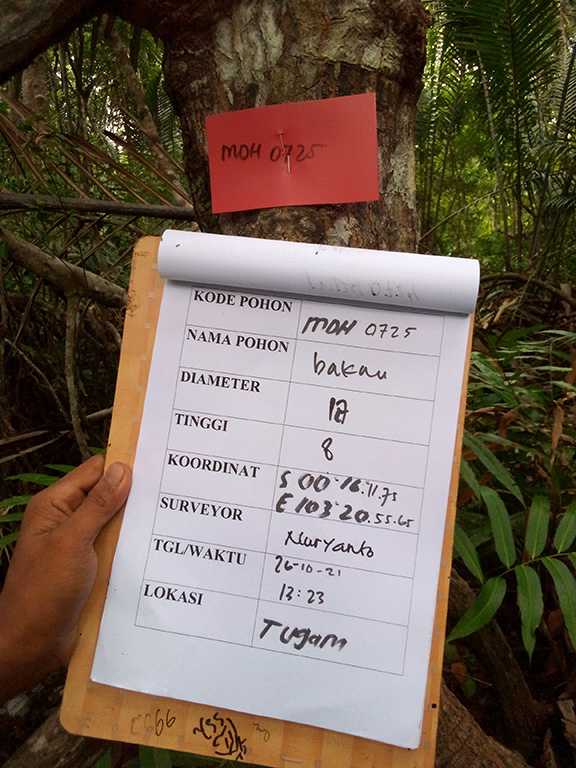 MDH 0725
KODE POHON MDH 0725
NAMA POHON bakau
DIAMETER
TINGGI 8
KOORDINAT S 00°16'.11.73
E 103°20'.55.65
SURVEYOR Nuryanto
TGL/WAKTU 26-10-21
13:23
LOKASI Tugam